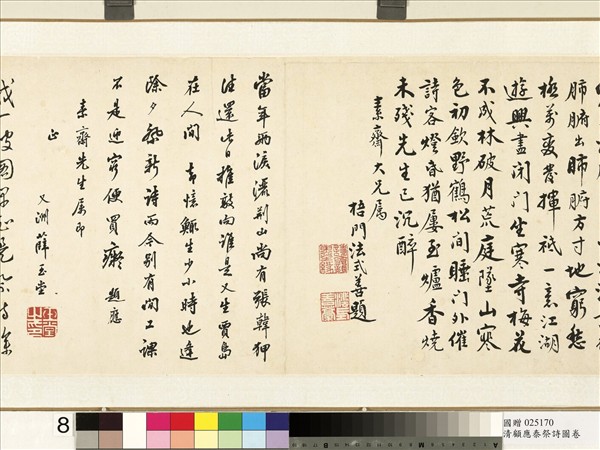 肺腑出肺腑方寸地窮愁
極萬變發揮祗一意江湖
遊興盡閉門坐寒奇梅花
不成林破月荒庭墜山寒
色初欽野鶴松間睡門外催
詩客燈昏猶屢至爐香燒
未殘先生已沉醉
素齋大兄屬
梧門法式善題
當年兩淚荊山尚有張韓狎
往還此日推敲向誰是又生賈島
在人間 憶鯫生少小時也逢
除夕祭新詩而今別有閒工課
不是迎窮便買癡 題應
素齋先生屬即
正
又洲薛玉堂
8
國贈 025170
清顧應泰祭詩圖卷